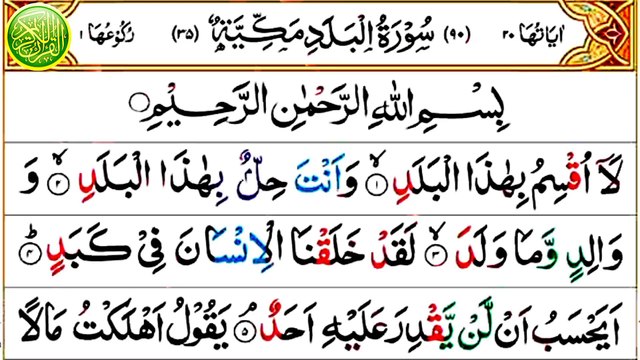 اٰيَاتُهَا ٢٠ (٩٠) سُوْرَةُ الْبَلَدِ مَكِّيَّةٌ (٣٥) رُكُوْعُهَا ١
بِسْمِ اللّٰهِ الرَّحْمٰنِ الرَّحِيْمِ
لَاۤ اُقْسِمُ بِهٰذَا الْبَلَدِۙ ١ وَاَنْتَ حِلٌّۢ بِهٰذَا الْبَلَدِۙ ٢ وَ
وَالِدٍ وَّمَا وَلَدَۙ ٣ لَقَدْ خَلَقْنَا الْاِنْسَانَ فِيْ كَبَدٍؕ ٤
اَيَحْسَبُ اَنْ لَّنْ يَّقْدِرَ عَلَيْهِ اَحَدٌۘ ٥ يَقُوْلُ اَهْلَكْتُ مَالًا